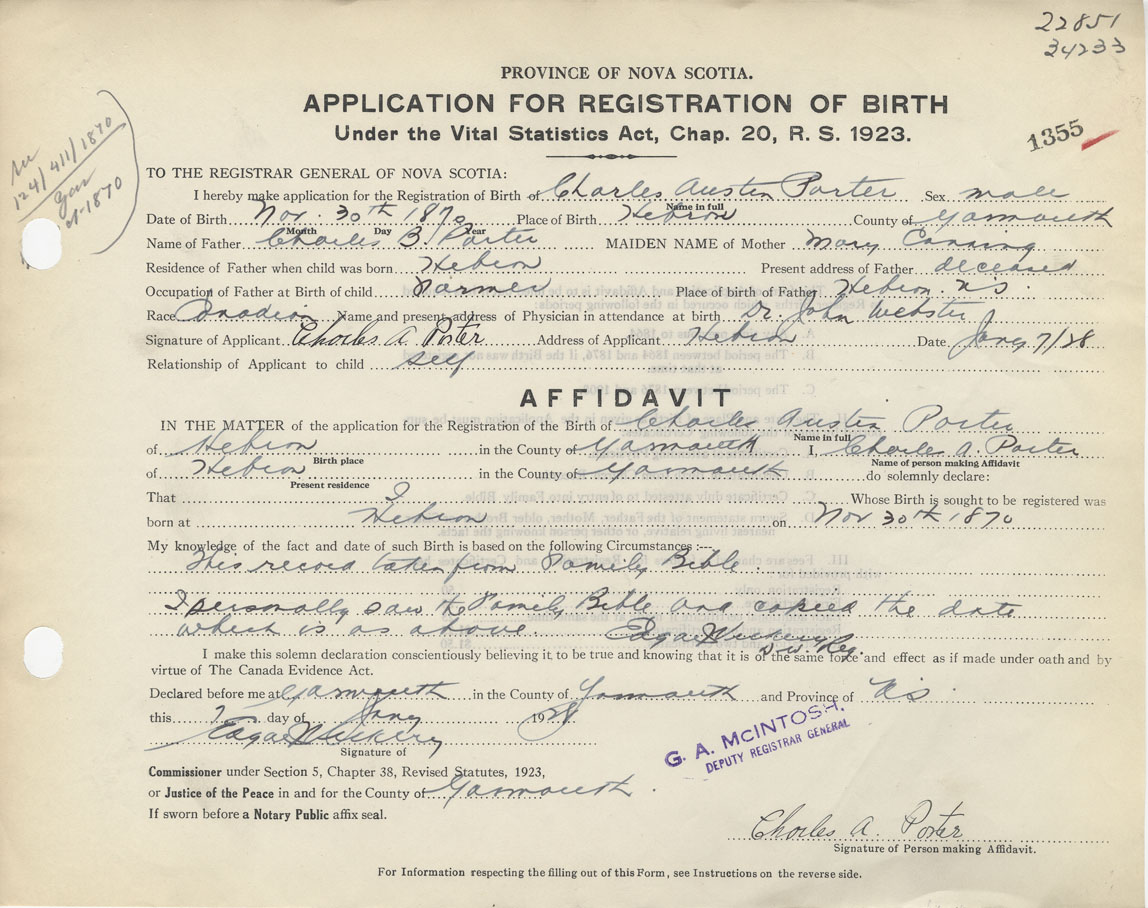 22851
34233
PROVINCE OF NOVA SCOTIA.
APPLICATION FOR REGISTRATION OF BIRTH
Under the Vital Statistics Act, Chap. 20, R. S. 1923.
1355
124/411/1870
Yar
1870
TO THE REGISTRAR GENERAL OF NOVA SCOTIA:
I hereby make application for the Registration of Birth of Charles Austin Porter Sex male
Name in full
Date of Birth Nov. 30th 1870 Place of Birth Hebron County of Yarmouth
Month Day Year
Name of Father Charles B. Porter MAIDEN NAME of Mother Mary Canning
Residence of Father when child was born Hebron Present address of Father deceased
Occupation of Father at Birth of child Farmer Place of birth of Father Hebron N.S.
Race Canadian Name and present address of Physician in attendance at birth Dr. John Webster
Signature of Applicant Charles A Porter Address of Applicant Hebron Date Jany 7/28
Relationship of Applicant to child self
AFFIDAVIT
IN THE MATTER of the application for the Registration of the Birth of Charles Austin Porter
Name in full
of Hebron in the County of Yarmouth I, Charles A. Porter
Birth place Name of person making Affidavit
of Hebron in the County of Yarmouth do solemnly declare:
Present residence
That I Whose Birth is sought to be registered was
born at Hebron on Nov 30th 1870
My knowledge of the fact and date of such Birth is based on the following Circumstances :---
This record taken from Family Bible.
I personally saw the Family Bible and copied the date
which is as above. Edgar
I make this solemn declaration conscientiously believing it to be true and knowing that it is of the same force and effect as if made under oath and by
virtue of The Canada Evidence Act.
Declared before me at Yarmouth in the County of Yarmouth and Province of N.S.
this 7 day of Jany 1928
Edgar
Signature of
G. A. McINTOSH.
DEPUTY REGISTRAR GENERAL
Commissioner under Section 5, Chapter 38, Revised Statutes, 1923,
or Justice of the Peace in and for the County of Yarmouth.
If sworn before a Notary Public affix seal.
Charles A. Porter
Signature of Person making Affidavit.
For Information respecting the filling out of this Form, see Instructions on the reverse side.